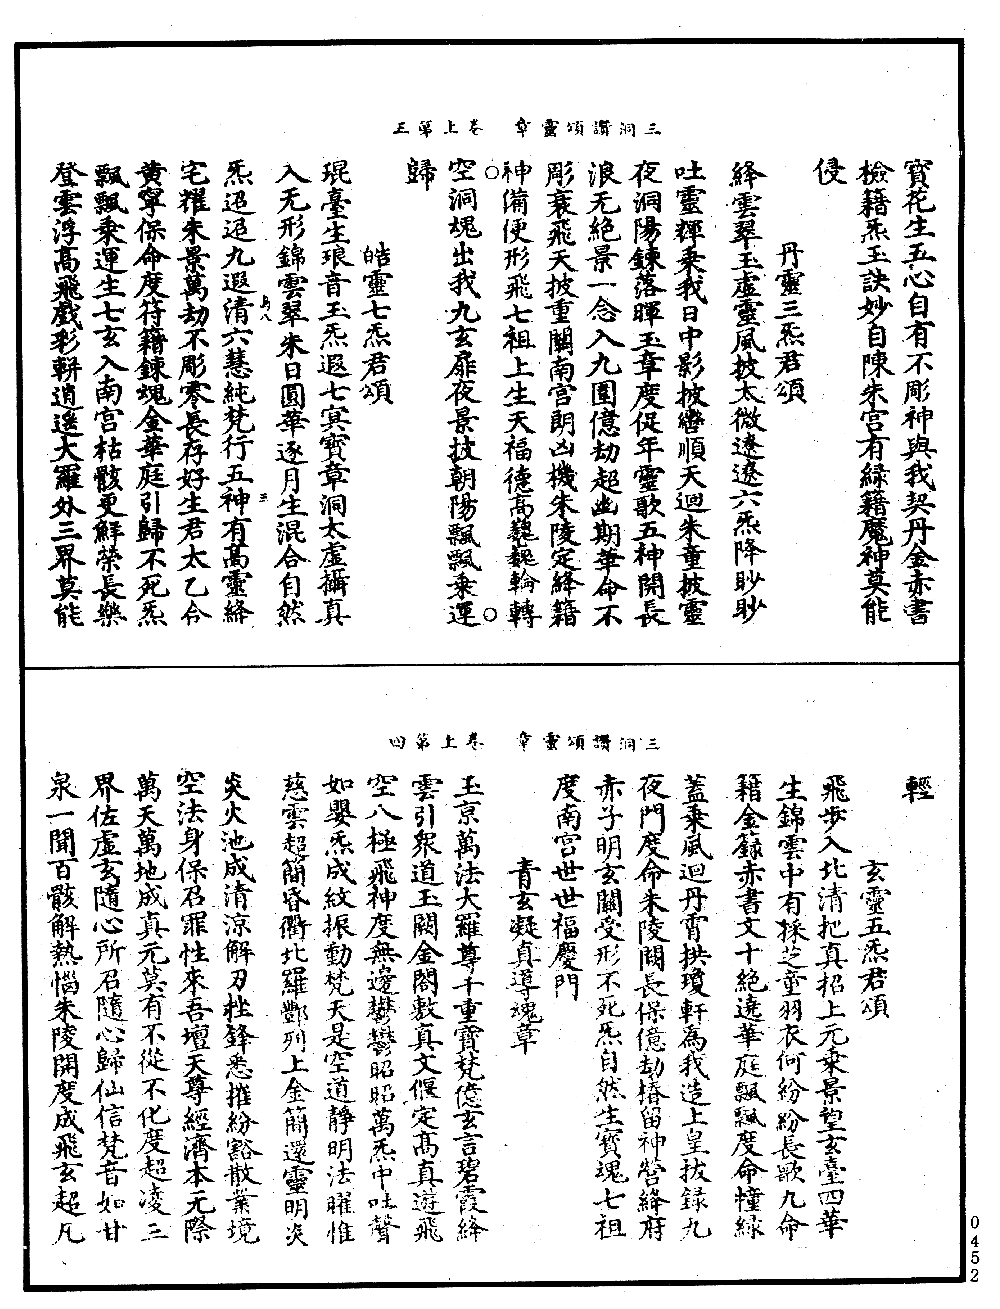 三洞讚頌靈章　卷上第三
寶花生五心自有不彫神與我契丹金赤書
檢籍炁玉訣妙自陳朱宮有綠籍魔神莫能
侵
丹靈三炁君頌
絳雲翠玉虛靈風披太微遼遼六炁降眇眇
吐靈輝乘我日中影披巒順天迴朱童披靈
夜洞陽鍊落暉玉章度促年靈歌五神開長
浪无絕景一念入九圍億劫超幽期華命不
彫衰飛天披重關南宮朗凶機朱陵定絳籍
神備便形飛七祖上生天福德高巍巍輪轉
○○
空洞魂出我九玄扉夜景披朝陽飄飄乘運
歸
皓靈七炁君頌
琨臺生琅音玉炁遐七宾寶章洞太虛攝真
入无形錦雲翠朱日圓華逐月生混合自然
炁迢迢九遐清六慧純梵行五神有高靈絳
宅耀朱景萬劫不彫零長存好生君太乙令
黄寧保命度符籍鍊魂金華庭引歸不死炁
飄飄乘運生七玄入南宮枯骸更鮮榮長樂
登雲浮高飛戲彩輧逍遥大羅外三界莫能
三洞讚頌靈章　卷上第四
輕
玄靈五炁君頌
飛步入北清把真招上元乘景望玄臺四華
生錦雲中有採芝童羽衣何紛紛長歌九命
籍金籙赤書文十絕遶華庭飄飄度命幢綠
蓋乘風迴丹霄拱瓊軒爲我造上皇拔錄九
夜門度命朱陵關長保億劫椿留神營絳府
赤子明玄關受形不死炁自然生寶魂七祖
度南宮世世福慶門
青玄凝真導魂章
玉京萬法大羅尊千重霄梵億玄言碧霞絳
雲引衆道玉闕金閣敷真文偃定高真遊飛
空八極飛神度無邊欝欝昭昭萬炁中吐聲
如嬰炁成紋振動梵天是空道靜明法曜惟
慈雲超簡昏衢北羅酆列上金簡還靈明炎
炎火池成清涼解刃挫鋒悉摧紛豁散業境
空法身保召罪性來吾壇天尊經濟本元際
萬天萬地成真元莫有不從不化度超凌三
界佐虛玄隨心所召隨心歸仙信梵音如甘
泉一聞百骸解熱惱朱陵開度成飛玄超凡
0452